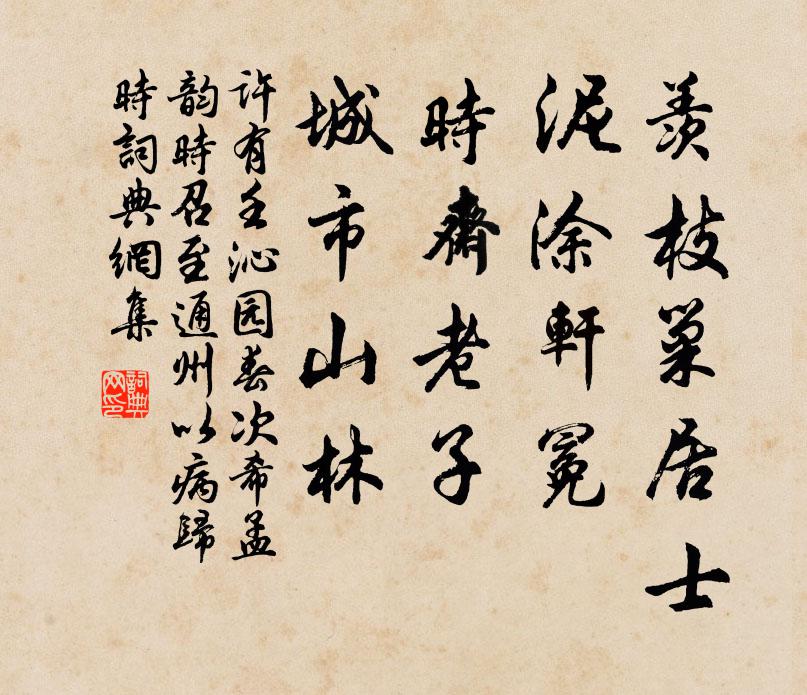 羨枝巢居士
泥涂軒冕
時齋老子
城市山林
許有壬沁园春次希孟
韵時召至通州以病歸
時詞典網集
詞典
网印